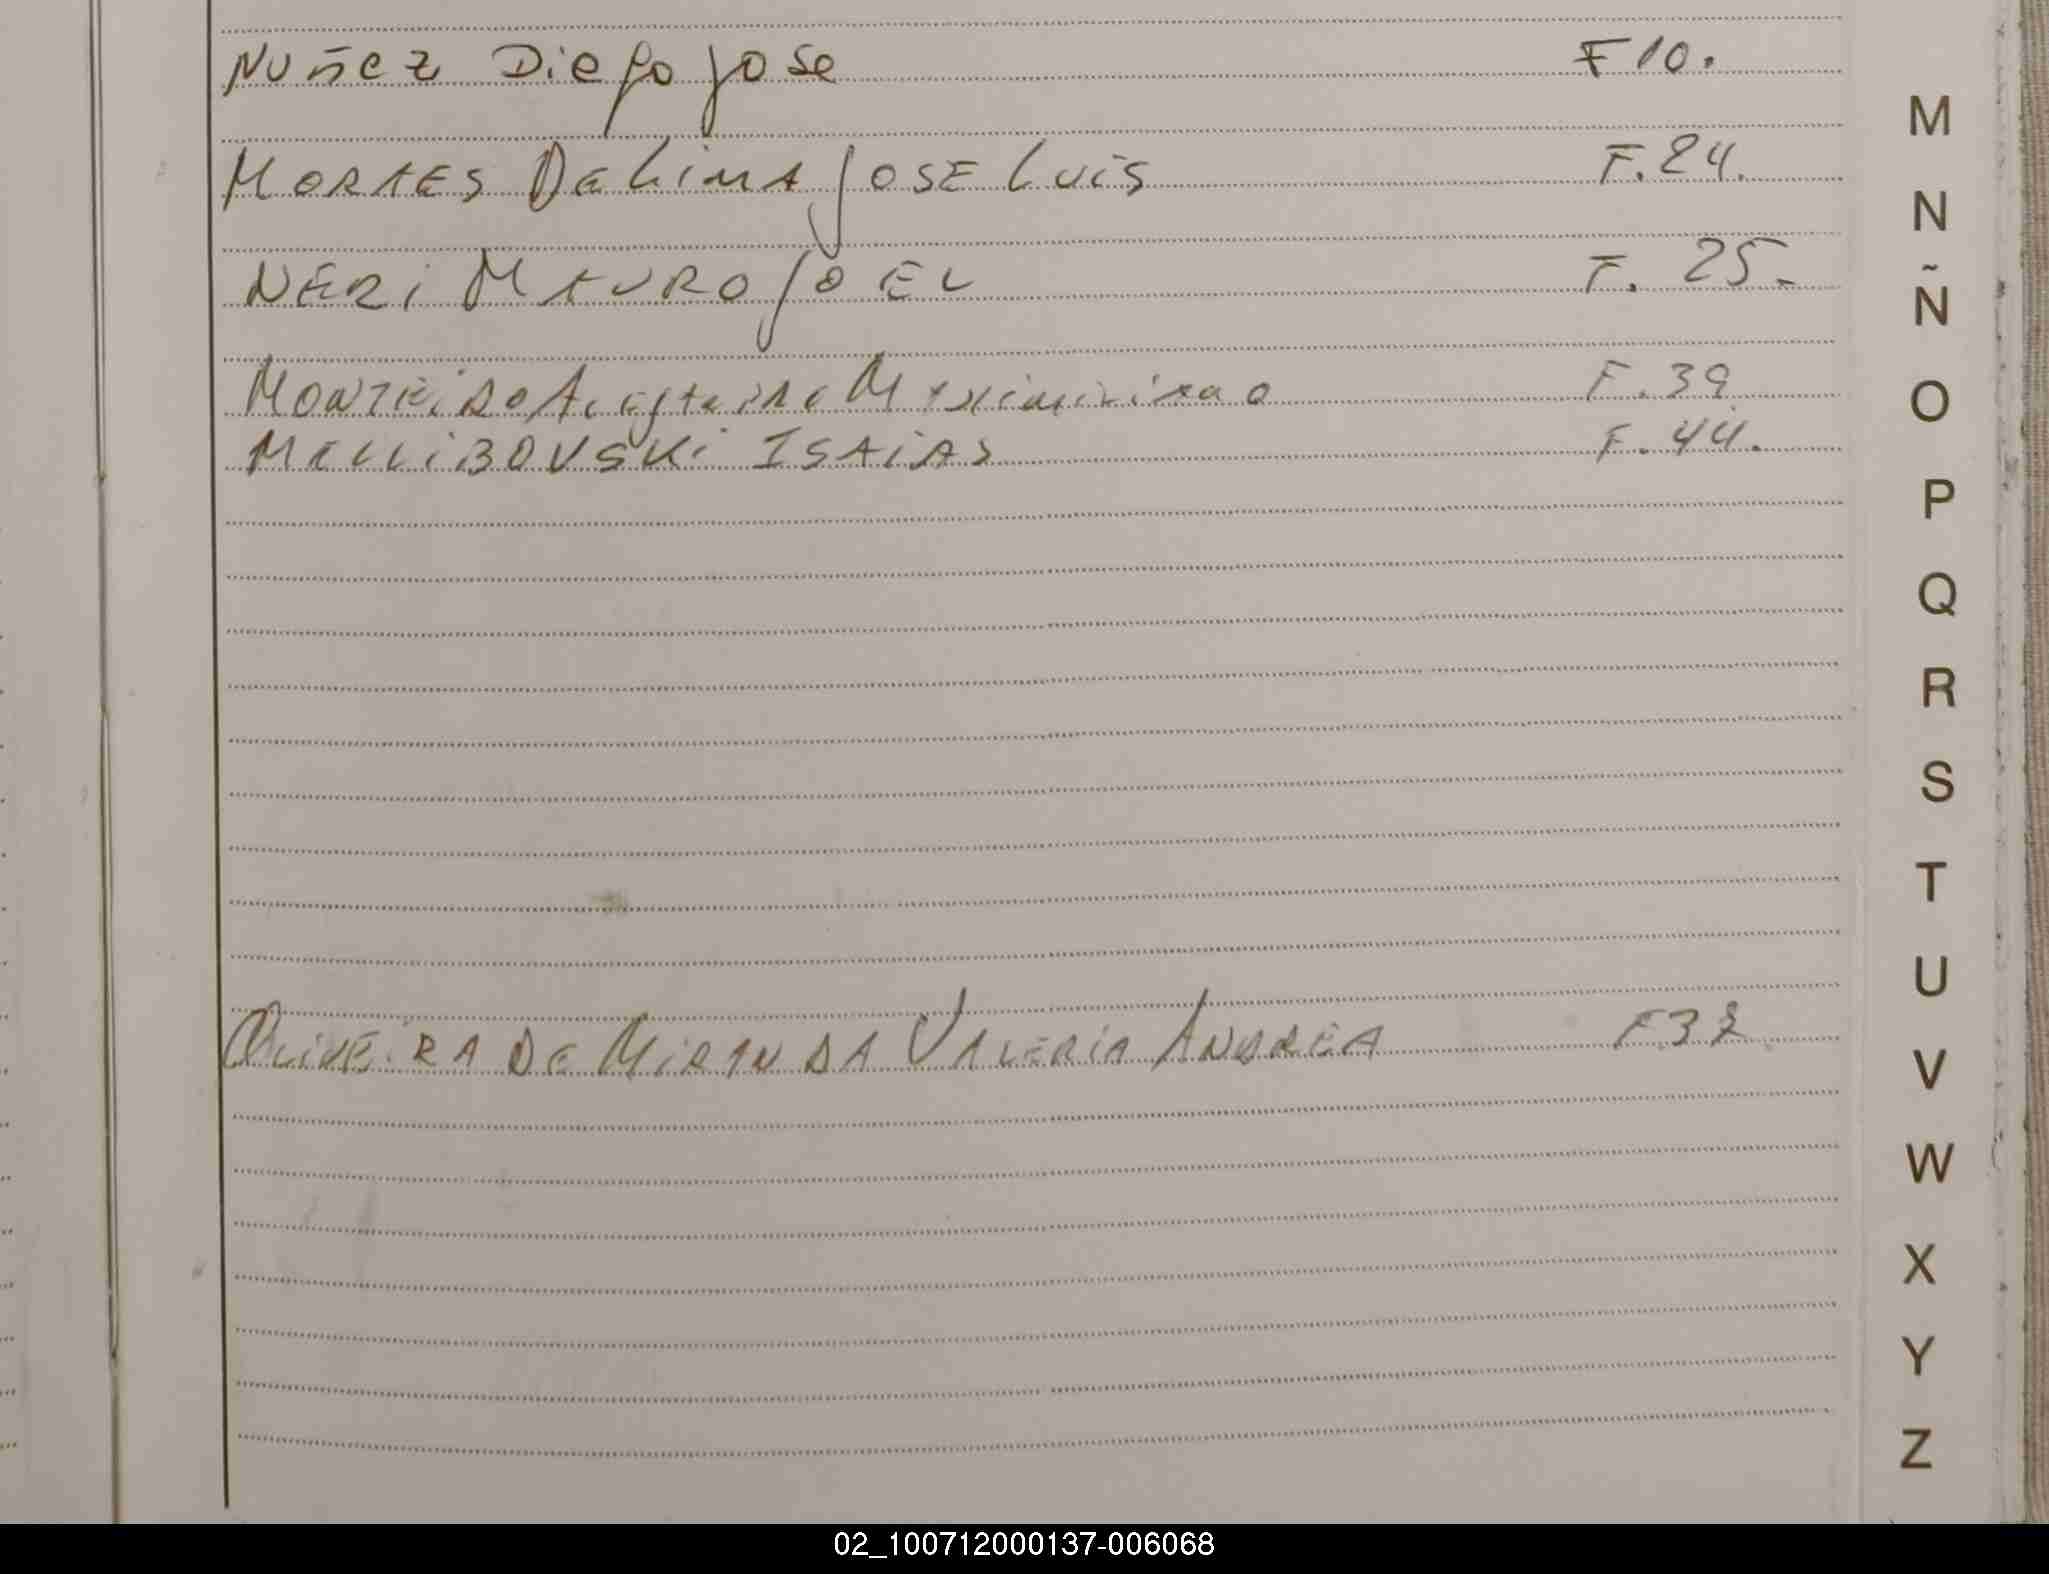 Nuñez Diego Jose F 10.
MORAES De Lima JOSE Luis F. 24.
NERi MAURO JOEL F. 25.
MONTEiRO F. 39
ISAiAS F. 44.
OLiVEiRA DE MiRANDA VALERiA ANDREA F 37
M
N
Ñ
O
P
Q
R
S
T
U
V
W
X
Y
Z
02_100712000137-006068